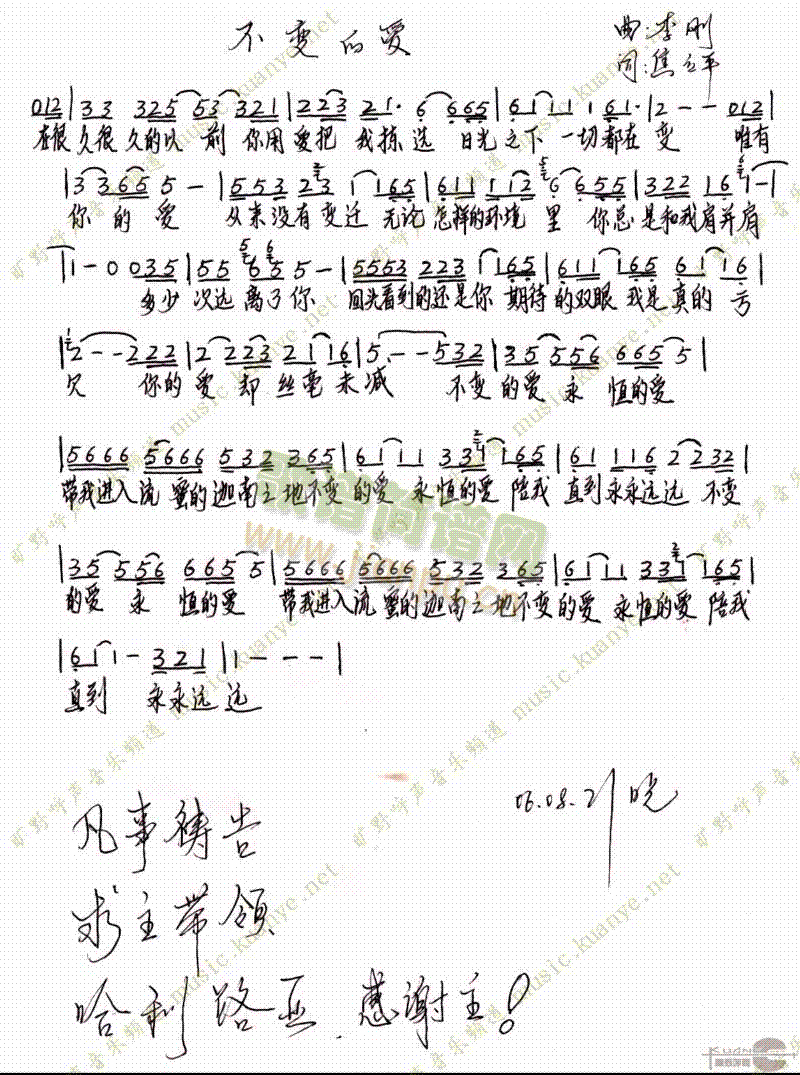 不变的爱
曲:李刚
词:焦立平
012|33 325 53 321|223 21· 6 665|61 11 1 61·|2--012|
在很久很久的以前 你用爱把我拣选 日光之下一切都在变 唯有
|33655-|553 23 1165|611 112 6 655|322 16 1-|
你的爱 从来没有变迁 无论怎样的环境里 你总是和我肩并肩
|1-0035|55 655-|5553 223 1165|611 165 61 16|
多少次远离了你 回头看到的还是你 期待的双眼 我是真的亏
|2--222|2 223 2116|5--532|35 556 665 5|
欠 你的爱却丝毫未减 不变的爱 永恒的爱
|5666 5666 532 365|6111 33 1165|61 116 2232|
带我进入流蜜的迦南之地不变的爱 永恒的爱 陪我直到永永远远 不变
|35 556 665 5|5666 5666 532 365|6111 33 1165|
的爱 永恒的爱 带我进入流蜜的迦南之地不变的爱 永恒的爱 陪我
|611-321|1---|
直到 永永远远
06.08.21 晓
凡事祷告
求主带领
哈利路亚.感谢主!
歌谱简谱网
旷野呼声音乐频道 music.kuanye.net